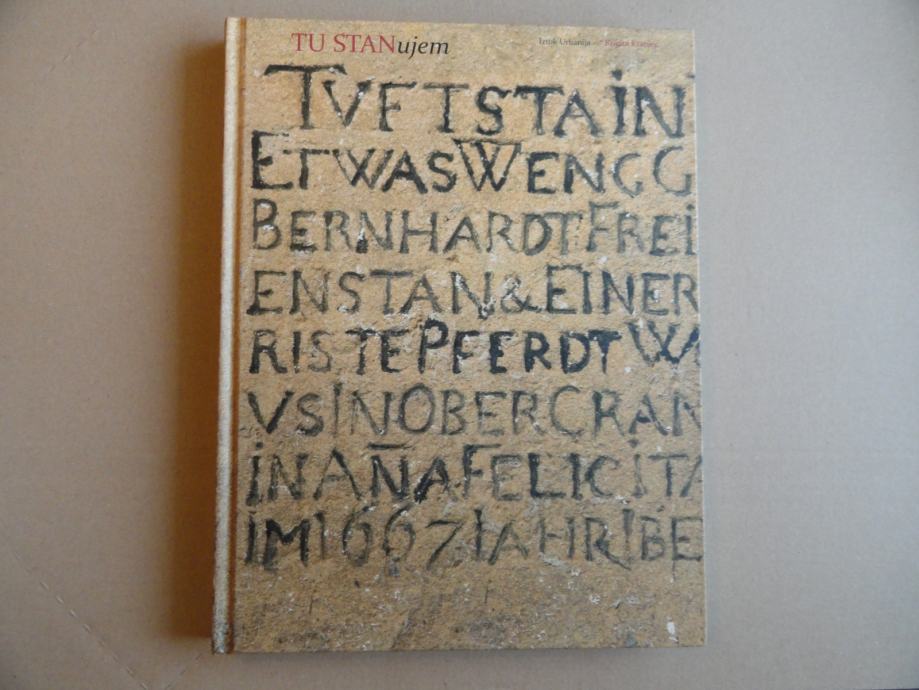 TU STANujem
Iztok Urbanija
TVFTSTAIN
ETWASWENGG
BERNHARDTFREI
ENSTAN&EINER
RISTEPFERDTWA
VSINOBERCRAN
INAÑAFELICITA
IM1667IAHRIBE